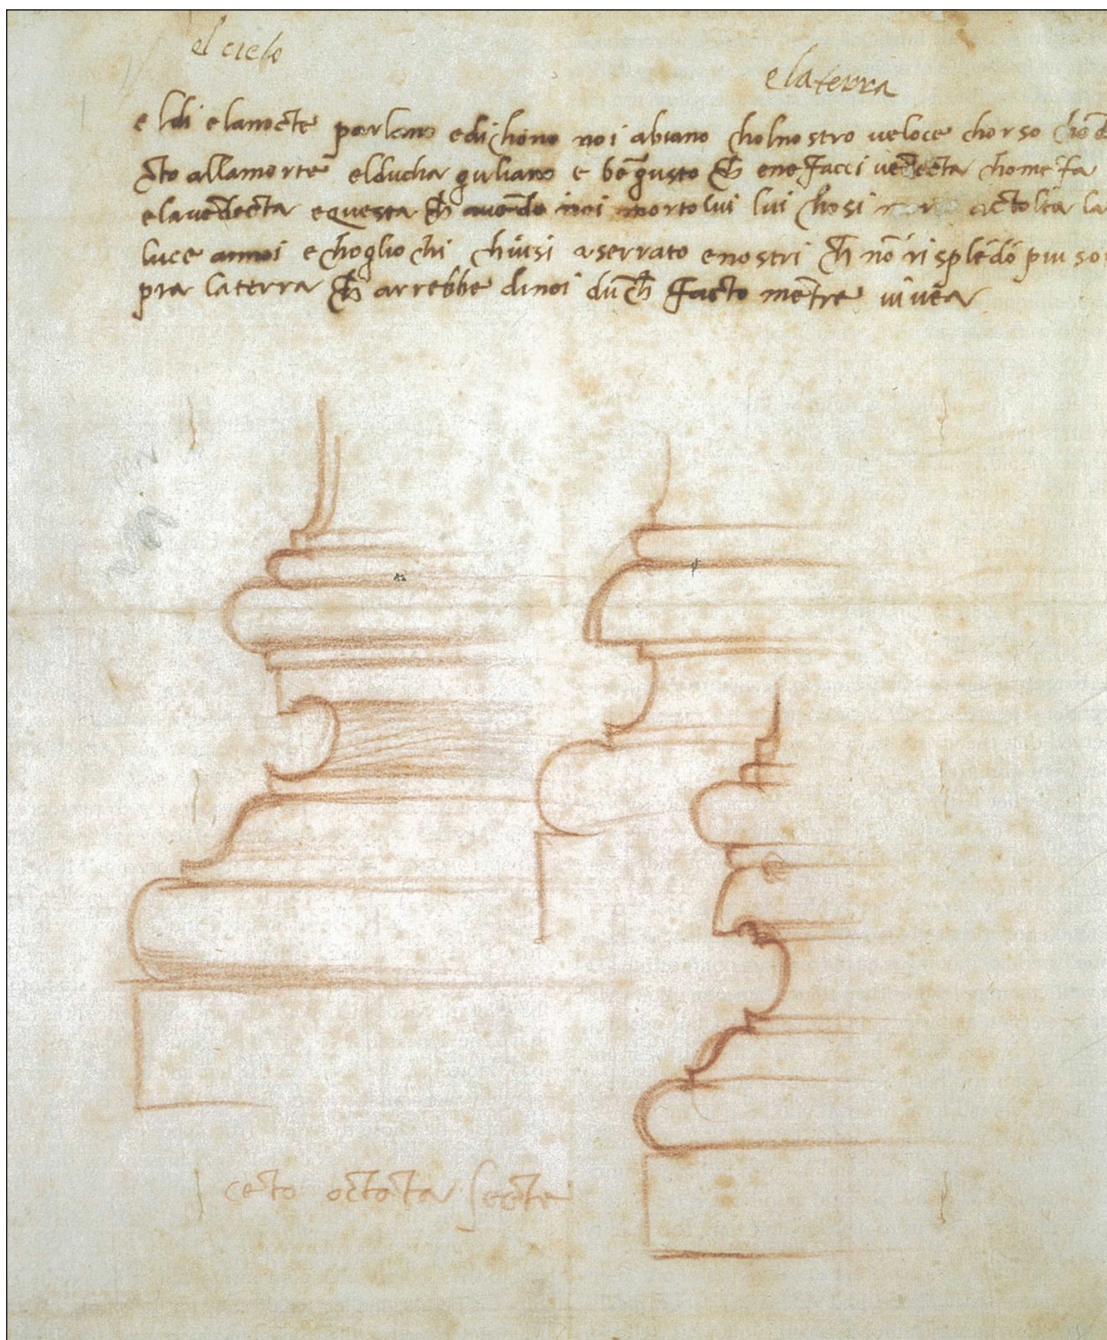 el cielo
e la terra
e ldi e lanocte parlano e dichono noi abiano chol nostro veloce chorso chōd
cto alla morte el ducha giuliano e bē gusto ch ene facci vēdecta chome fa
e la vēdecta e questa ch avendo noi morto lui lui chosi morto a ctolta la
luce a nnoi e chogli ochi chiusi a serrato e nostri ch nō risplēdō piu so
pra la terra ch arrebbe di noi dūch facto mētre vivea
cēto octāta secte